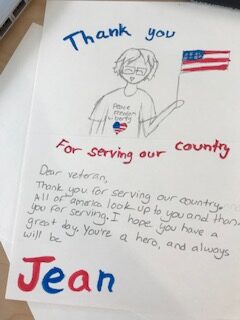 Thank you
Peace
freedom
liberty
For serving our country
Dear veteran,
Thank you for serving our country.
All of america look up to you and thank
you for serving. I hope you have a
great day. You're a hero, and always
will be
Jean